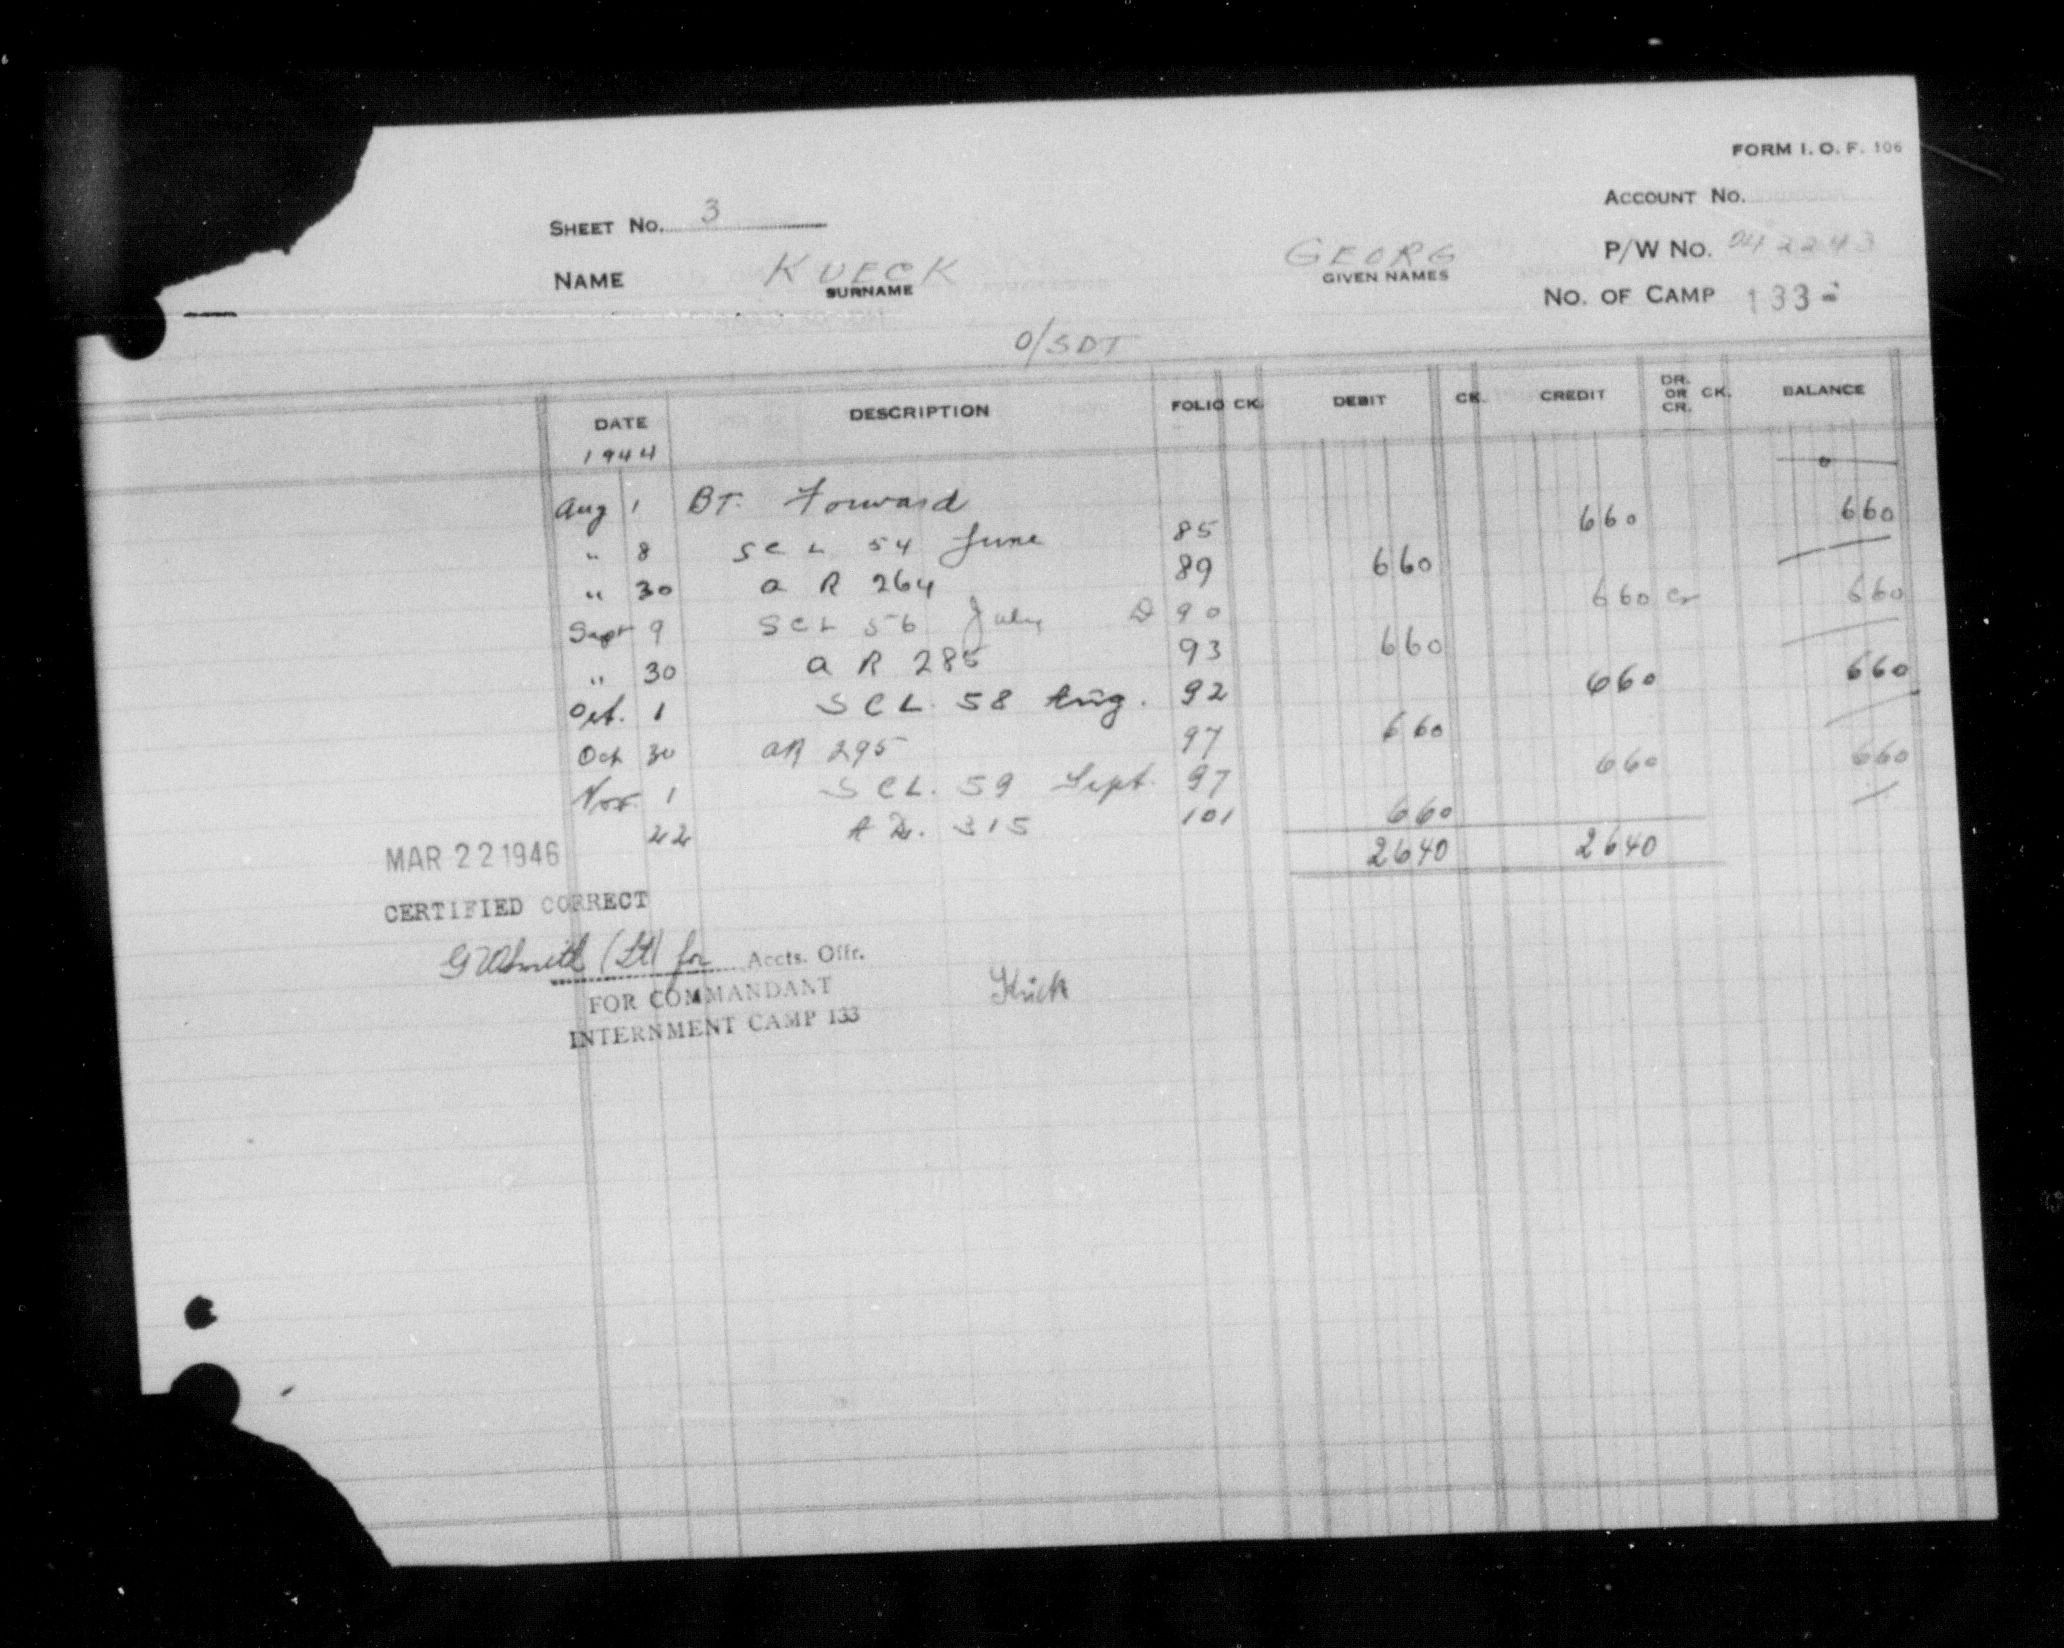 FORM I. O. F. 106
ACCOUNT No.
SHEET No. 3
P/W No. 042243
NAME KUECK GEORG
SURNAME GIVEN NAMES
No. OF CAMP 133
O/SDT
DATE DESCRIPTION FOLIO CK. DEBIT CK. CREDIT DR. OR CR. CK. BALANCE
1944
Aug 1 BT. Forward 0
" 8 SCL 54 June 85 660 660
" 30 a R 264 89 660
Sept 9 SCL 56 July D 90 660 Cr 660
" 30 a R 285 93 660
Oct. 1 SCL. 58 Aug. 92 660 660
Oct 30 aR 295 97 660
Nov. 1 SCL. 59 Sept. 97 660 660
22 A R. 315 101 660
2640 2640
MAR 22 1946
CERTIFIED CORRECT
Smith (Lt) for Accts. Offr.
FOR COMMANDANT
INTERNMENT CAMP 133
Kück